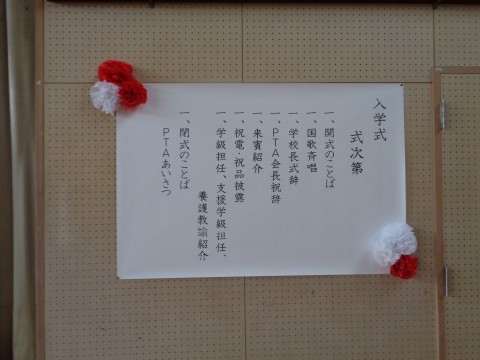 入学式
式次第
一、開式のことば
一、国歌斉唱
一、学校長式辞
一、PTA会長祝辞
一、来賓紹介
一、祝電・祝品披露
一、学級担任、支援学級担任、
養護教諭紹介
一、閉式のことば
PTAあいさつ